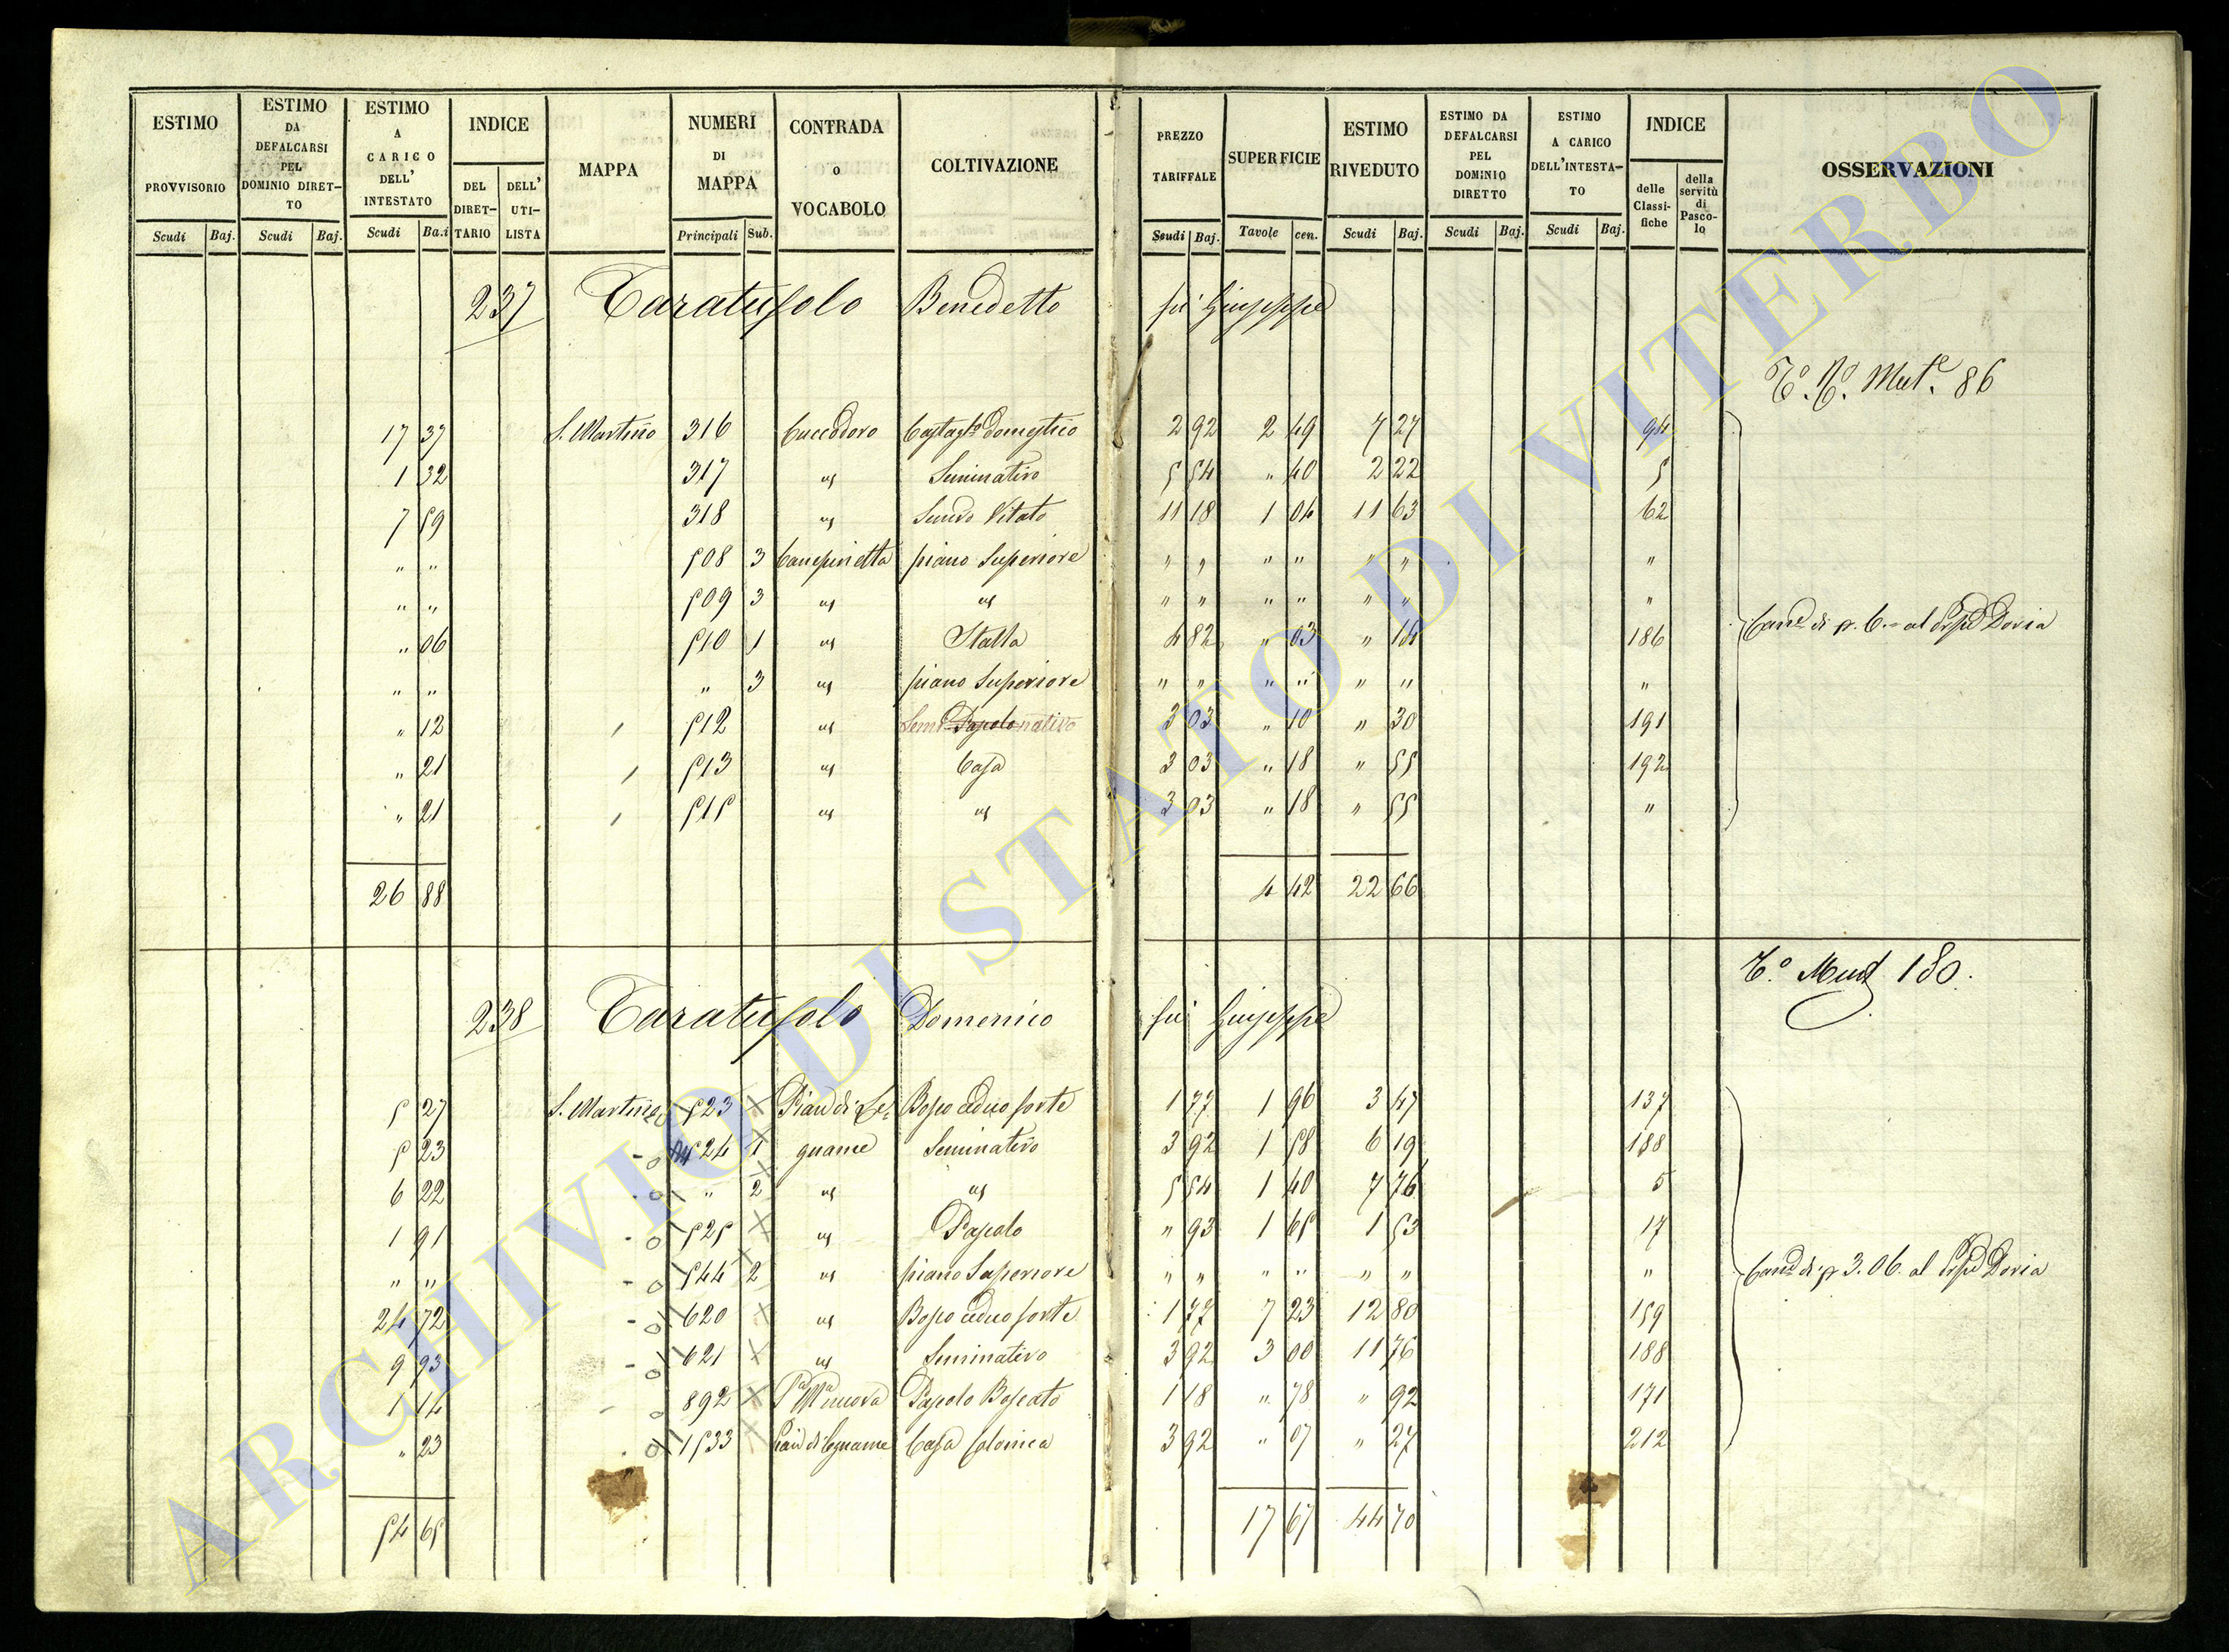 ESTIMO PROVVISORIO Scudi Baj.
ESTIMO DA DEFALCARSI PEL DOMINIO DIRET-TO Scudi Baj.
ESTIMO A CARICO DELL' INTESTATO Scudi Ba.i
INDICE DEL DIRET-TARIO DELL' UTI-LISTA
MAPPA
NUMERI DI MAPPA Principali Sub.
CONTRADA o VOCABOLO
COLTIVAZIONE
PREZZO TARIFFALE Scudi Baj.
SUPERFICIE Tavole cen.
ESTIMO RIVEDUTO Scudi Baj.
ESTIMO DA DEFALCARSI PEL DOMINIO DIRETTO Scudi Baj.
ESTIMO A CARICO DELL'INTESTA-TO Scudi Baj.
INDICE delle Classi-fiche della servitù di Pasco-lo
OSSERVAZIONI
237 Taratufolo Benedetto fu Giuseppe
Mut.e 86
17 37 S. Martino 316 Cuccodoro Castag.to Domestico 2 92 2 49 7 27 94
1 32 317 " Seminativo 5 54 " 40 2 22 5
7 59 318 " Semvo Vitato 11 18 1 04 11 63 62
" " 508 3 Canepinetta piano Superiore " " " " " " "
" " 509 3 " " " " " " " " "
" 06 510 1 " Stalla 4 82 " 03 " 14 186
Can.e di sc. 6.= al Doria
" " " 3 " piano Superiore " " " " " " "
" 12 512 " Semi Pascolo nativo 3 03 " 10 " 30 191
" 21 513 " Casa 3 03 " 18 " 55 192
" 21 515 " " 3 03 " 18 " 55 "
26 88 4 42 22 66
T.o Mut 180.
238 Taratufolo Domenico fu Giuseppe
5 27 S. Martino 523 Pian di Le= Bosco ceduo forte 1 77 1 96 3 47 137
5 23 524 1 gname Seminativo 3 92 1 58 6 19 188
6 22 " 2 " " 5 54 1 40 7 76 5
1 91 525 " Pascolo " 93 1 65 1 53 17
" " 544 2 " piano Superiore " " " " " " "
Can.e di sc 3.06. al Doria
24 72 620 " Bosco ceduo forte 1 77 7 23 12 80 159
9 93 621 " Seminativo 3 92 3 00 11 76 188
1 14 892 nuova Pascolo Boscato 1 18 " 78 " 92 171
" 23 1533 Pian di Legname Casa colonica 3 92 " 07 " 27 212
54 65 17 67 44 70
ARCHIVIO DI STATO DI VITERBO